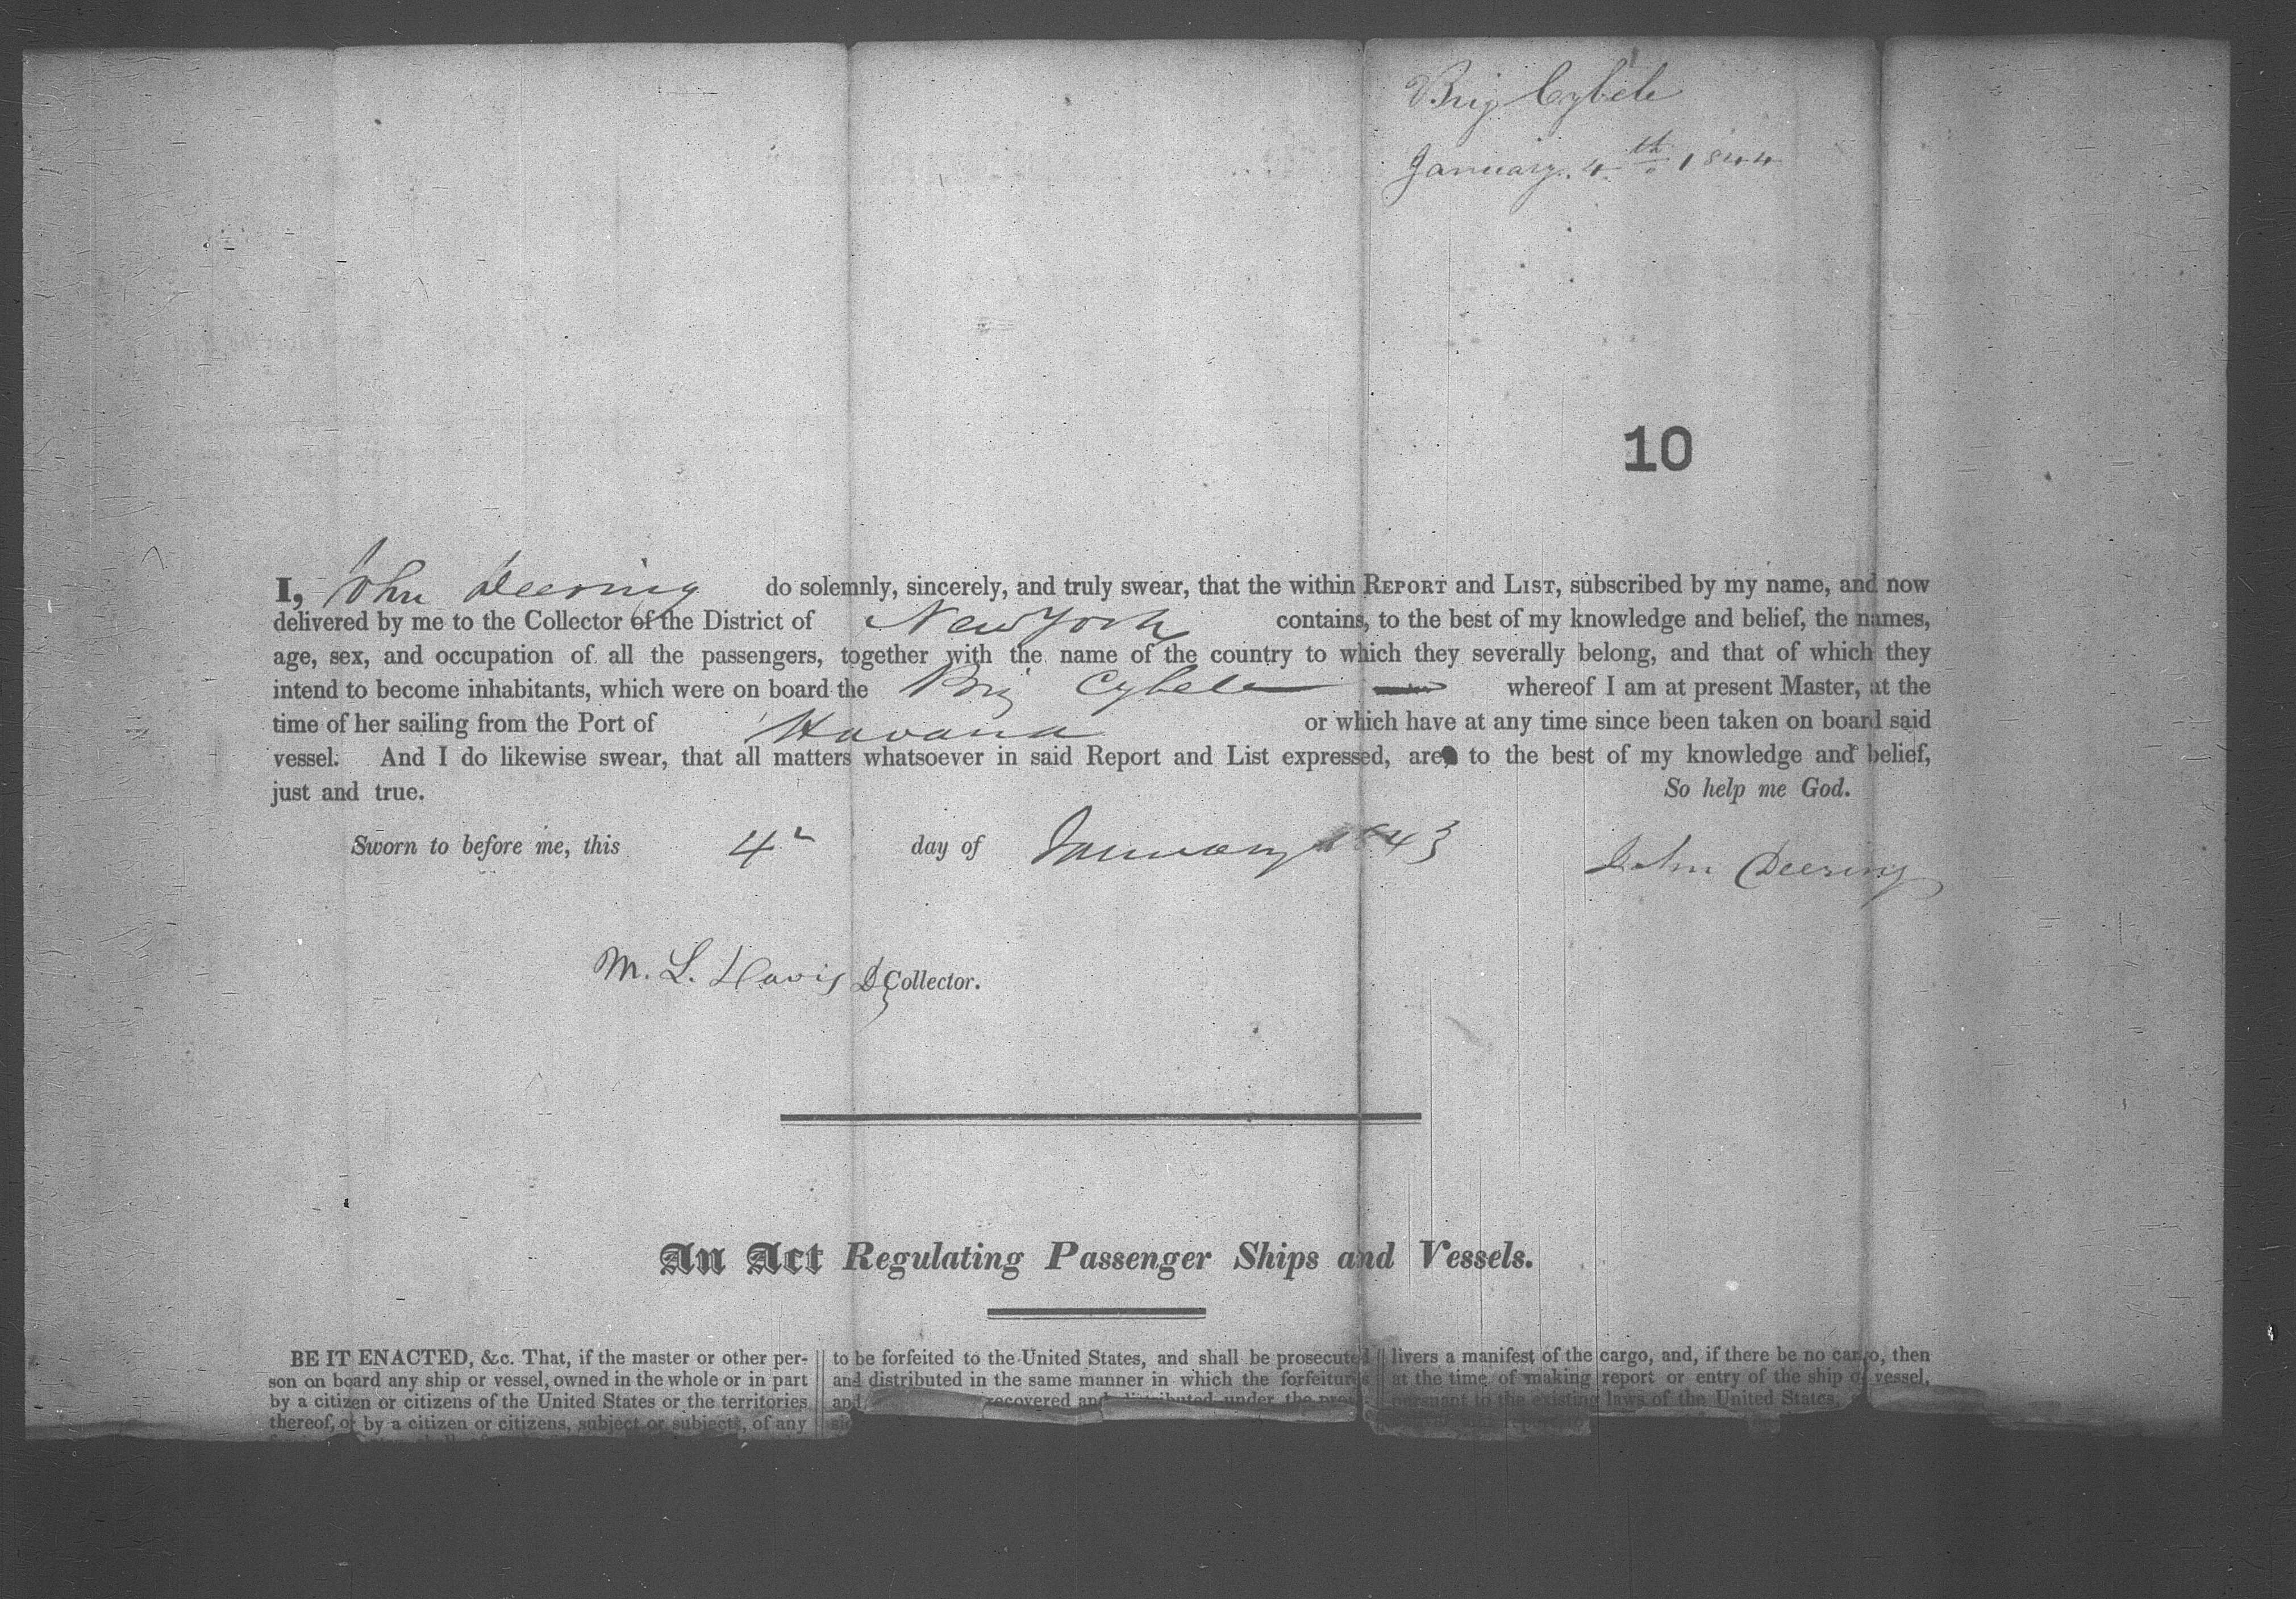 Brig Cybele
January 4th 1844
10
I, John Deering do solemnly, sincerely, and truly swear, that the within REPORT and LIST, subscribed by my name, and now
delivered by me to the Collector of the District of New York contains, to the best of my knowledge and belief, the names,
age, sex, and occupation of all the passengers, together with the name of the country to which they severally belong, and that of which they
intend to become inhabitants, which were on board the Brig Cybele whereof I am at present Master, at the
time of her sailing from the Port of Havana or which have at any time since been taken on board said
vessel. And I do likewise swear, that all matters whatsoever in said Report and List expressed, are, to the best of my knowledge and belief,
just and true. So help me God.
Sworn to before me, this 4th day of January 1843 John Deering
M. L. Davis D Collector.
An Act Regulating Passenger Ships and Vessels.
BE IT ENACTED, &c. That, if the master or other per-
son on board any ship or vessel, owned in the whole or in part
by a citizen or citizens of the United States or the territories
thereof, or by a citizen or citizens, subject or subjects, of any
to be forfeited to the United States, and shall be prosecuted
and distributed in the same manner in which the forfeitures
and recovered and distributed under the
livers a manifest of the cargo, and, if there be no cargo, then
at the time of making report or entry of the ship or vessel,
pursuant to the existing laws of the United States,